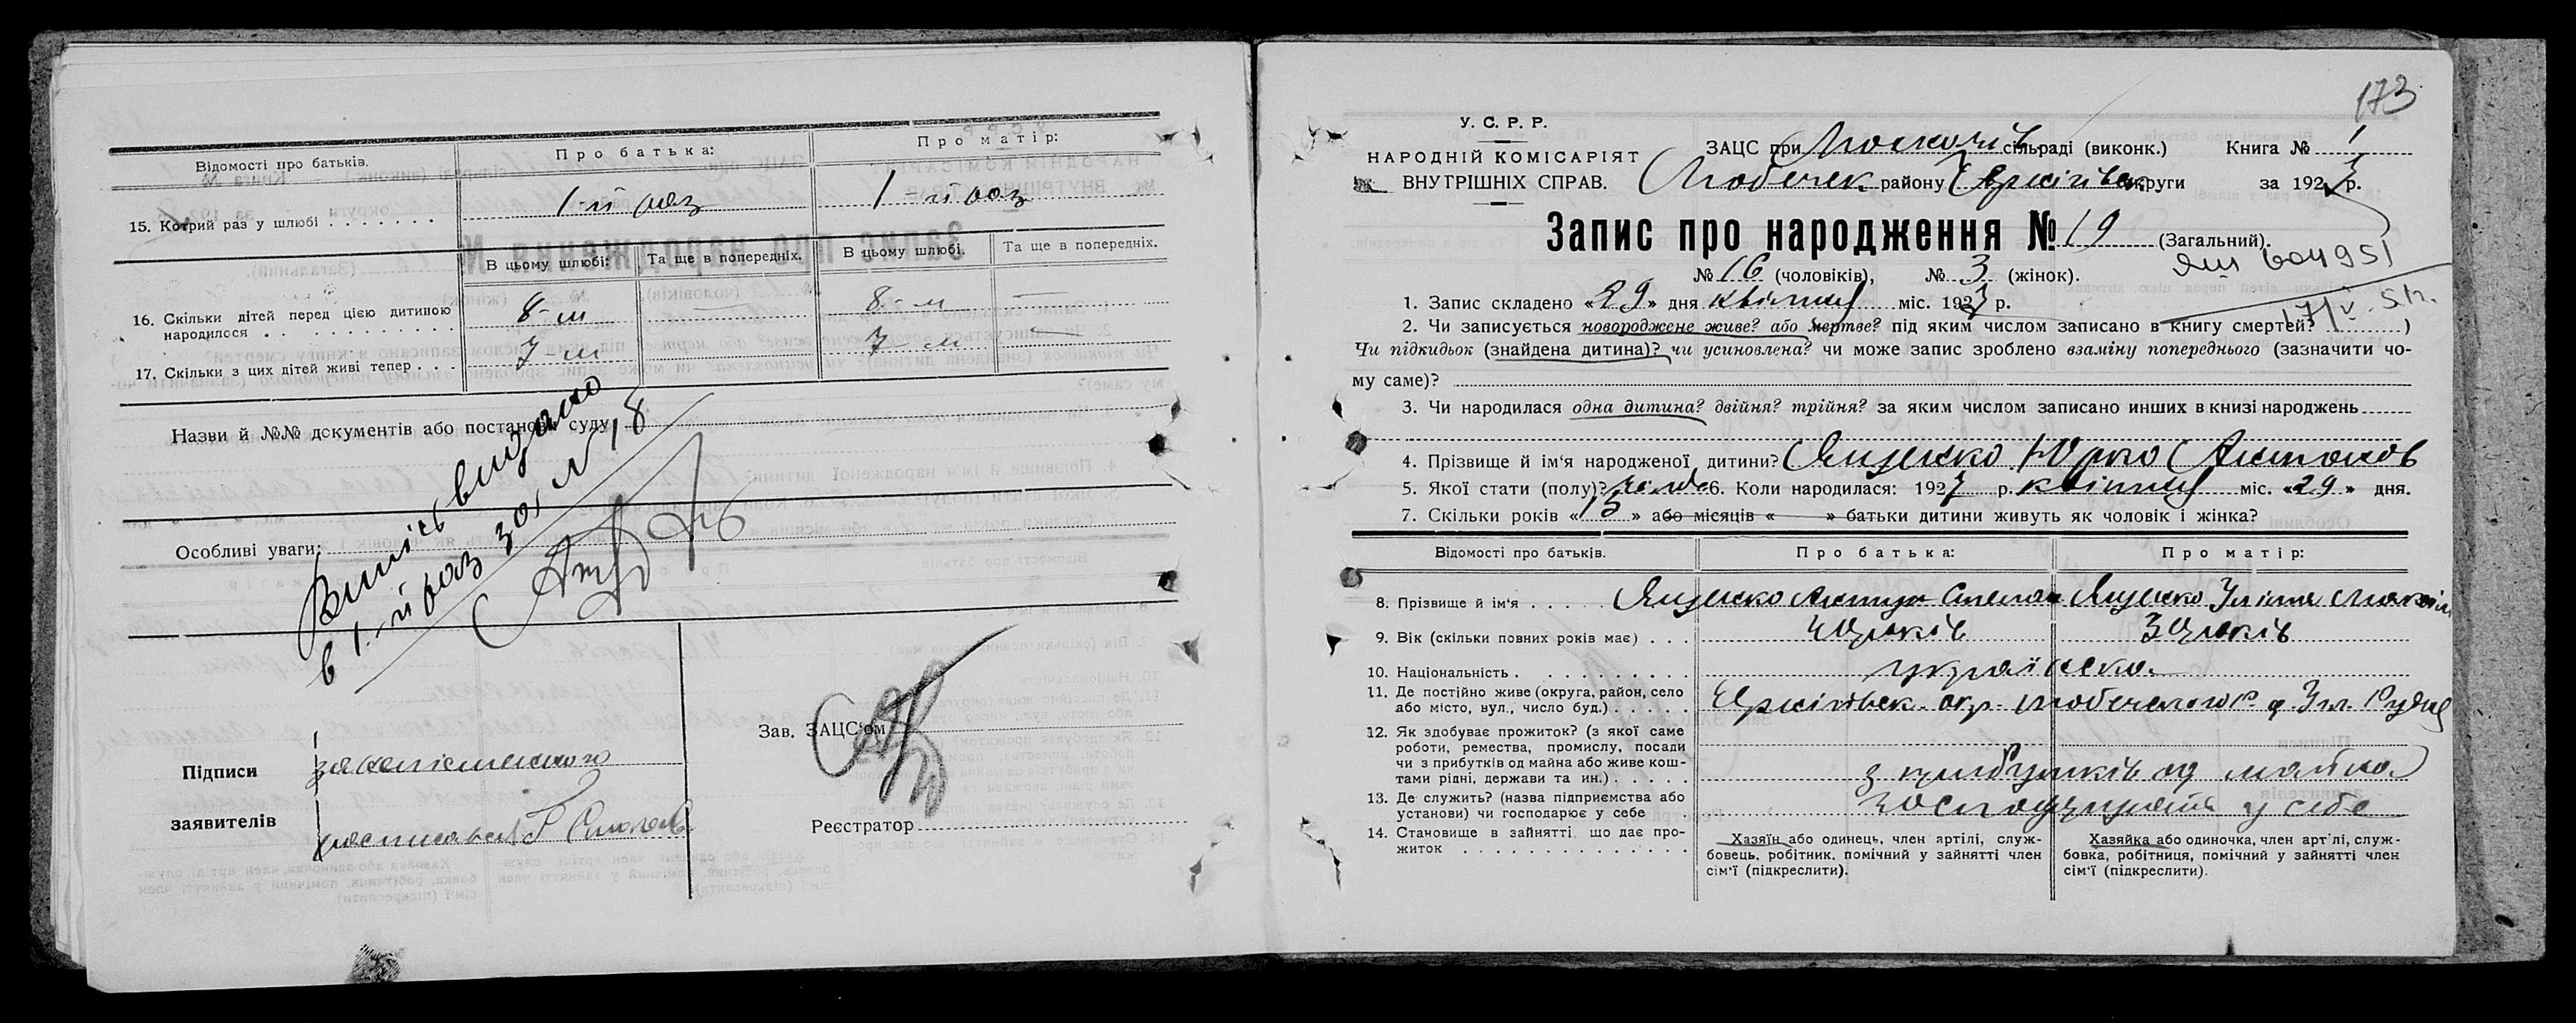 Відомості про батьків.
Про батька:
Про матір:
15. Котрий раз у шлюбі
1-й раз
1-й раз
В цьому шлюбі:
Та ще в попередніх.
В цьому шлюбі.
Та ще в попередніх.
16. Скільки дітей перед цією дитиною
народилося
8-м
—
8-м
—
17. Скільки з цих дітей живі тепер
7-м
7-м
—
Назви й №№ документів або постанови суду
Особливі уваги:
видано
в 1-й раз № 18
Підписи
заявителів
Зав. ЗАЦС'ом
Реєстратор
173
У. С. Р. Р.
НАРОДНІЙ КОМІСАРІЯТ
ВНУТРІШНІХ СПРАВ.
ЗАЦС при сільраді (виконк.) Книга № 1
Любечек району округи за 1927 р.
Запис про народження № 19 (Загальний).
№ 16 (чоловіків), № 3 (жінок).
604951
1. Запис складено «29» дня квітня міс. 1927 р.
2. Чи записується новороджене живе? або мертве? під яким числом записано в книгу смертей? )
Чи підкидьок (знайдена дитина)? чи усиновлена? чи може запис зроблено взаміну попереднього (зазначити чо-
му саме)?
3. Чи народилася одна дитина? двійня? трійня? за яким числом записано инших в книзі народжень
4. Прізвище й ім'я народженої дитини? Ященко Юрко Антонов
5. Якої стати (полу)? чолов 6. Коли народилася: 1927 р. квітня міс. «29» дня.
7. Скільки років «15» або місяців « » батьки дитини живуть як чоловік і жінка?
Відомості про батьків.
Про батька:
Про матір:
8. Прізвище й ім'я
Ященко Антон Степан
Ященко Уляна
9. Вік (скільки повних років має)
років
років
10. Національність
українска
11. Де постійно живе (округа, район, село
або місто, вул., число буд.)
окр. Любечского р. Рудня
12. Як здобуває прожиток? (з якої саме
роботи, ремества, промислу, посади
чи з прибутків од майна або живе кош-
тами рідні, держави та ин.)
з прибутків од майна
13. Де служить? (назва підприємства або
установи) чи господарює у себе
у себе
14. Становище в зайнятті, що дає про-
житок
Хазяїн або одинець, член артілі, служ-
бовець, робітник, помічний у зайнятті член
сім'ї (підкреслити).
Хазяйка або одиночка, член артілі, служ-
бовка, робітниця, помічний у зайнятті член
сім'ї (підкреслити).